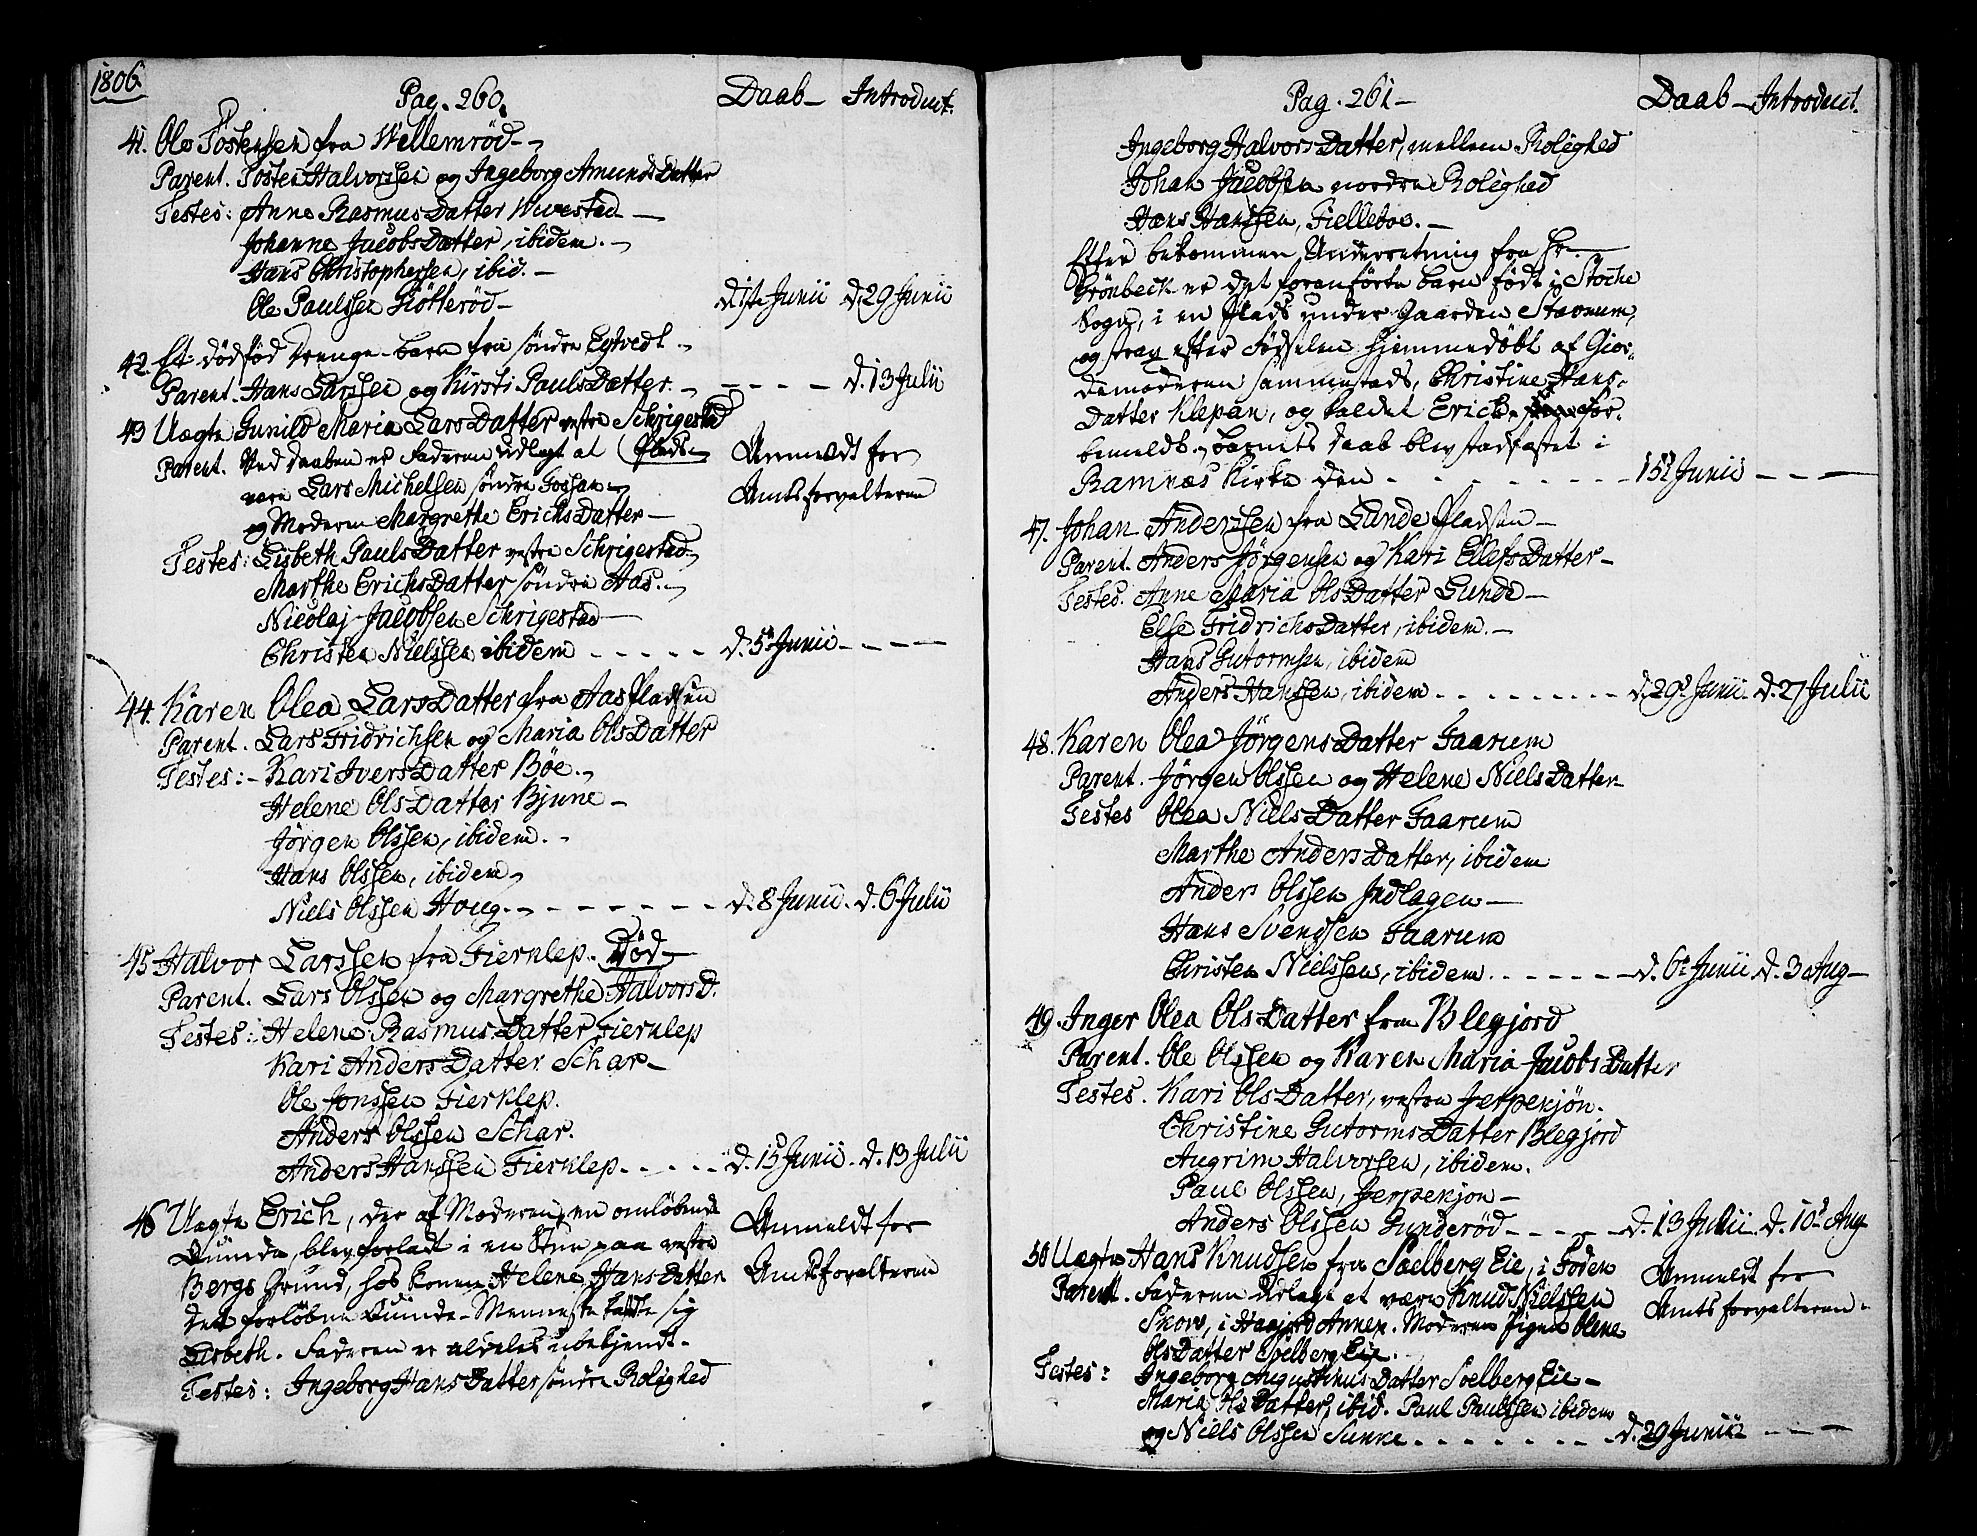 1806.
Pag. 260. Daab - Introduct.
41. Ole Tostensen fra Wellemröd -
Parent. Tosten Halvorssen og Ingeborg AmundsDatter
Testes: Anne RasmusDatter Wivestad -
Johanne JacobsDatter, ibidem. -
Hans Christophersen, ibid. -
Ole Paulssen Giötteröd - d. 1ste Junii d. 29 Junii
42. Et dödfød Drenge-barn fra söndre Eqtvedt -
Parent. Hans Larssen og Kirsti PaulsDatter. - - - - - d. 13 Julii
43 Uægte Gunild Maria LarsDatter vestre Schrigestad
Parent. Ved Daaben er Faderen udlagt at Plads - Anmeldt for
være Lars Michelsen söndre Fossan - Amtsforvalteren
og Moderen Margrethe ErichsDatter -
Testes: Lisbeth PaulsDatter vestre Schrigestad -
Marthe ErichsDatter söndre Aas. -
Nicolaj Jacobsen Schrigestad -
Christen Nielssen ibidem - - - - - d. 5t Junii - - - -
44. Karen Olea LarsDatter fra Aas Pladsen
Parent. Lars Fridrichsen og Maria OlsDatter
Testes: - Kari IversDatter Böe. -
Helene OlsDatter Bjune -
Jörgen Olssen, ibidem. -
Hans Olssen, ibidem -
Niels Olssen Houg. - - - - - - - d. 8 Junii. d. 6 Julii
45 Halvor Larssen fra Fierklep. Död -
Parent. Lars Olssen og Margrethe HalvorsD.
Testes: Helene RasmusDatter Fierklep
Kari AndersDatter Schar -
Ole Jonssen Fierklep.
Anders Olssen Schar.
Anders Hanssen Fierklep. - - - - - d. 15 Junii. d. 13 Julii
46 Uægte Erich, der af Moderen, en omløbende Anmeldt for
Qvinde, blev forladt i en Stue paa vestre
Bergs Grund, hos Konen Helene HansDatter Amtsforvalteren
det forløbne Qvinde-Menneske kaldte sig
Lisbeth. Faderen er aldeles ubekjendt. -
Testes: Ingeborg HansDatter söndre Rolighed
Pag. 261 - Daab - Introduct.
Ingeborg HalvorsDatter, mellem Rolighed
Johan Jacobsen nordre Rolighed
Hans Hanssen, Fielleboe. -
Efter bekommen Underretning fra Hr.
Grönbeck er det foranførte barn født i Stocke
Sogn, i en Plads under Gaarden Stavnum,
og strax efter Fødselen hjemmedöbt af Gior-
demoderen sammestads, Christine Hans-
Datter Klepan, og kaldet Erich. for-
bemeldte barnets daab blev stadfæstet i
Ramnæs Kirke den - - - - - - - - 15t Junii - - -
47. Johan Anderssen fra Lunde Pladsen -
Parent. Anders Jørgensen og Kari EllefsDatter -
Testes. Anne Maria OlsDatter Lunde -
Else FridrichsDatter, ibidem. -
Hans Gutormsen, ibidem
Anders Hanssen, ibidem - - - - - - - d. 29t Junii. d. 27 Julii
48. Karen Olea JörgensDatter Faarum
Parent. Jörgen Olssen og Helene NielsDatter -
Testes Olea NielsDatter Faarum
Marthe AndersDatter, ibidem
Anders Olssen Indlagen -
Hans Svendssen Faarum
Christen Nielssen, ibidem - - - - - - d. 6t Junii d. 3 Aug -
49. Inger Olea OlsDatter fra Blegjord
Parent. Ole Olssen og Karen Maria JacobsDatter
Testes. Kari OlsDatter, vestre Jerpekjön.
Christine GutormsDatter Blegjord
Augrim Halvorsen, ibidem.
Paul Olssen, Jerpekjon -
Anders Olssen Gunderöd - - - - - d. 13 Julii d. 10t Aug
50 Uægte Hans Knudsen fra Soelberg Eie, i Foden Anmeldt for
Parent. Faderen Udlagt at være Knud Nielssen
Skov, i Haajord Annex. Moderen Pigen Olene Amts forvalteren -
OlsDatter Soelberg Eie.
Testes: Ingeborg AugustinusDatter Soelberg Eie -
Maria OlsDatter, ibid. Paul Paulssen ibidem
og Niels Olssen Sunke - - - - - - - d. 29 Junii - - - -